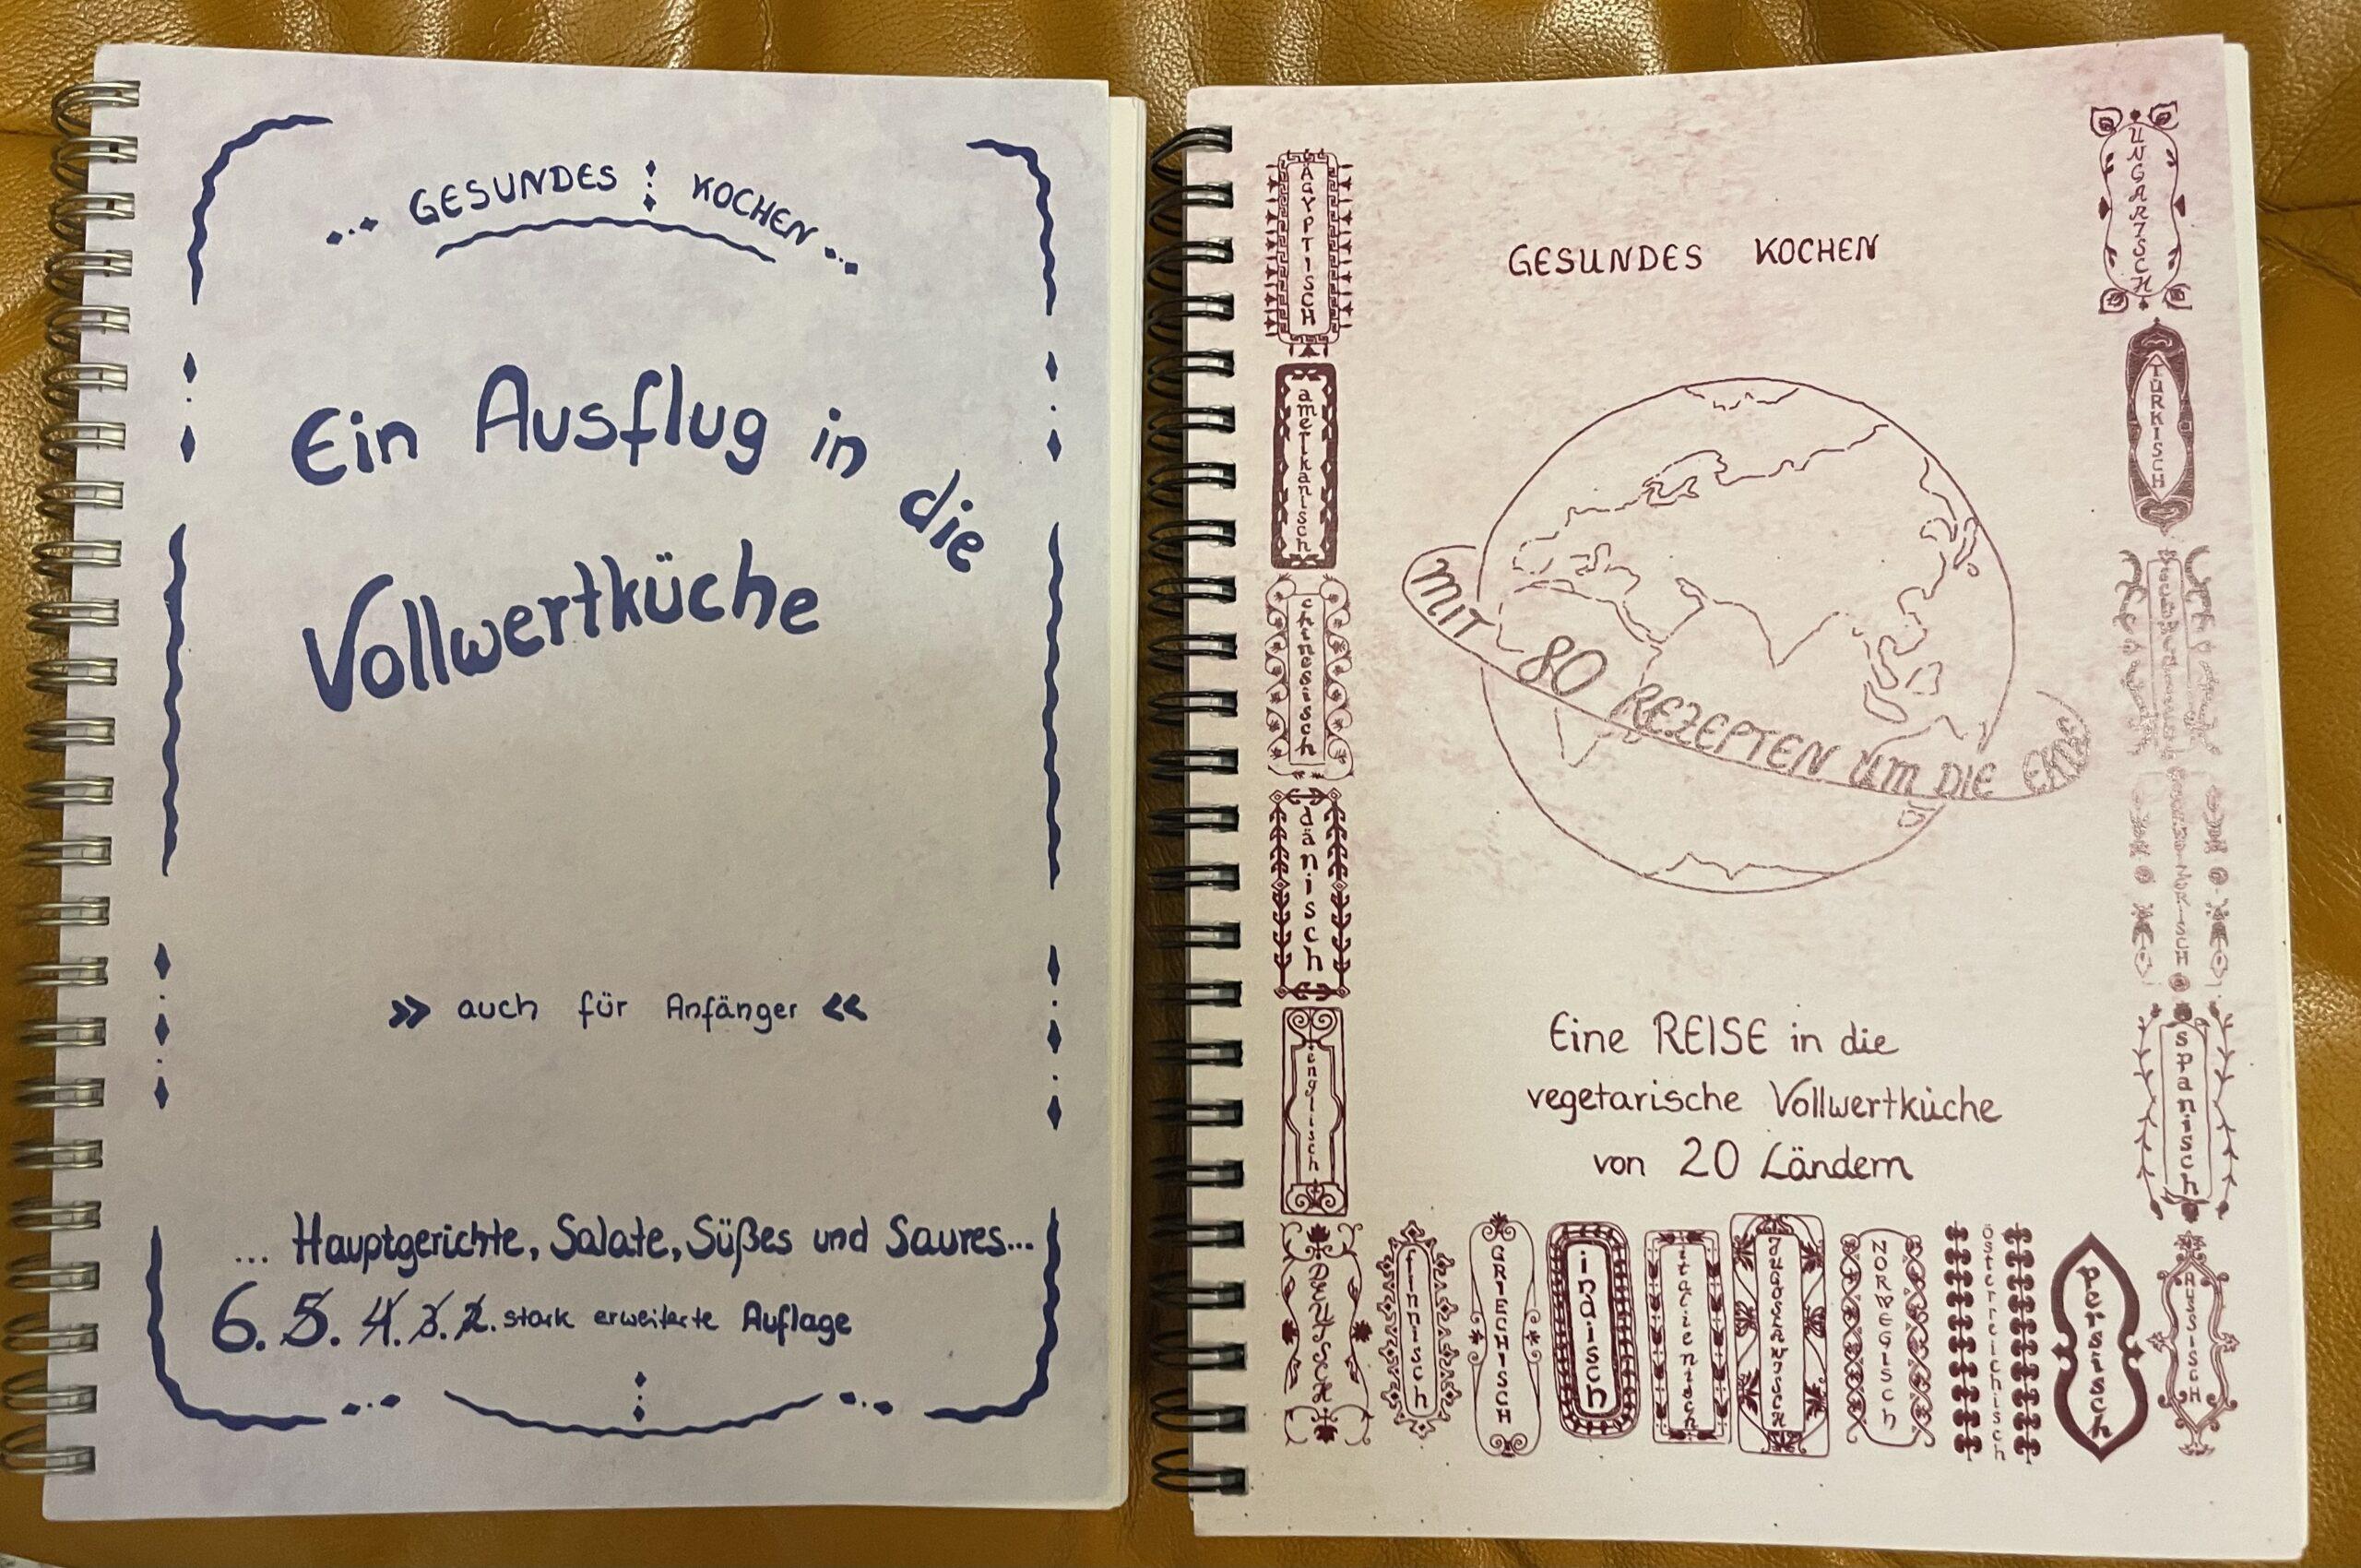 GESUNDES KOCHEN
Ein Ausflug in die
Vollwertküche
» auch für Anfänger «
... Hauptgerichte, Salate, Süßes und Saures...
6. 5. 4. 3. 2. stark erweiterte Auflage
GESUNDES KOCHEN
MIT 80 REZEPTEN UM DIE ERDE
Eine REISE in die
vegetarische Vollwertküche
von 20 Ländern
ÄGYPTISCH
amerikanisch
chinesisch
dänisch
englisch
DEUTSCH
finnisch
GRIECHISCH
indisch
italienisch
JUGOSLAWISCH
NORWEGISCH
österreichisch
persisch
RUSSISCH
spanisch
TÜRKISCH
UNGARISCH